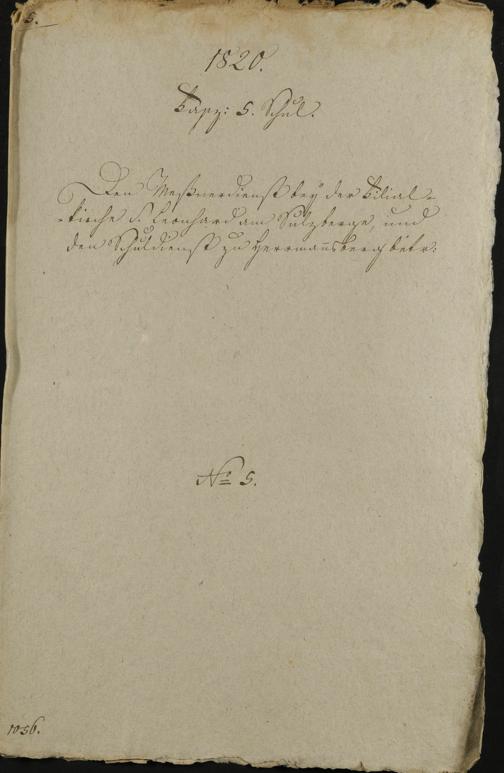 5.
1820.
Fasz: 5. Schul.
Den Meßnerdienst bey der Filial-
kirche S. Leonhard am Sulzberge, und
den Schuldienst zu Herrmannsberg betr:
No 5.
1056.